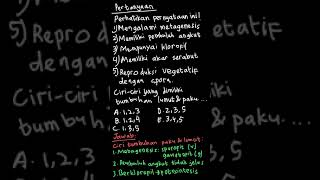 Pertanyaan
Perhatikan pernyataan ini!
1) Mengalami metagenesis
2) Memiliki pembuluh angkut
3) Mempunyai kloropil
4) Memiliki akar serabut
5) Reproduksi vegetatif
dengan spora.
Ciri-ciri yang dimiliki
tumbuhan lumut & paku ...
A. 1, 2, 3 D. 2, 3, 5
B. 1, 2, 4 E. 3, 4, 5
C. 1, 3, 5
Jawab:
Ciri tumbuhan paku & lumut:
1. Metagenesis: sporofit (v)
gametofit (g)
2. Pembuluh angkut tidak jelas
3. Berkloropil → fotosintesis
5) Repro
dengan
Ciri-ciri
tumbuh
A. 1, 2, 3
B. 1, 2, 4
C. 1, 3, 5